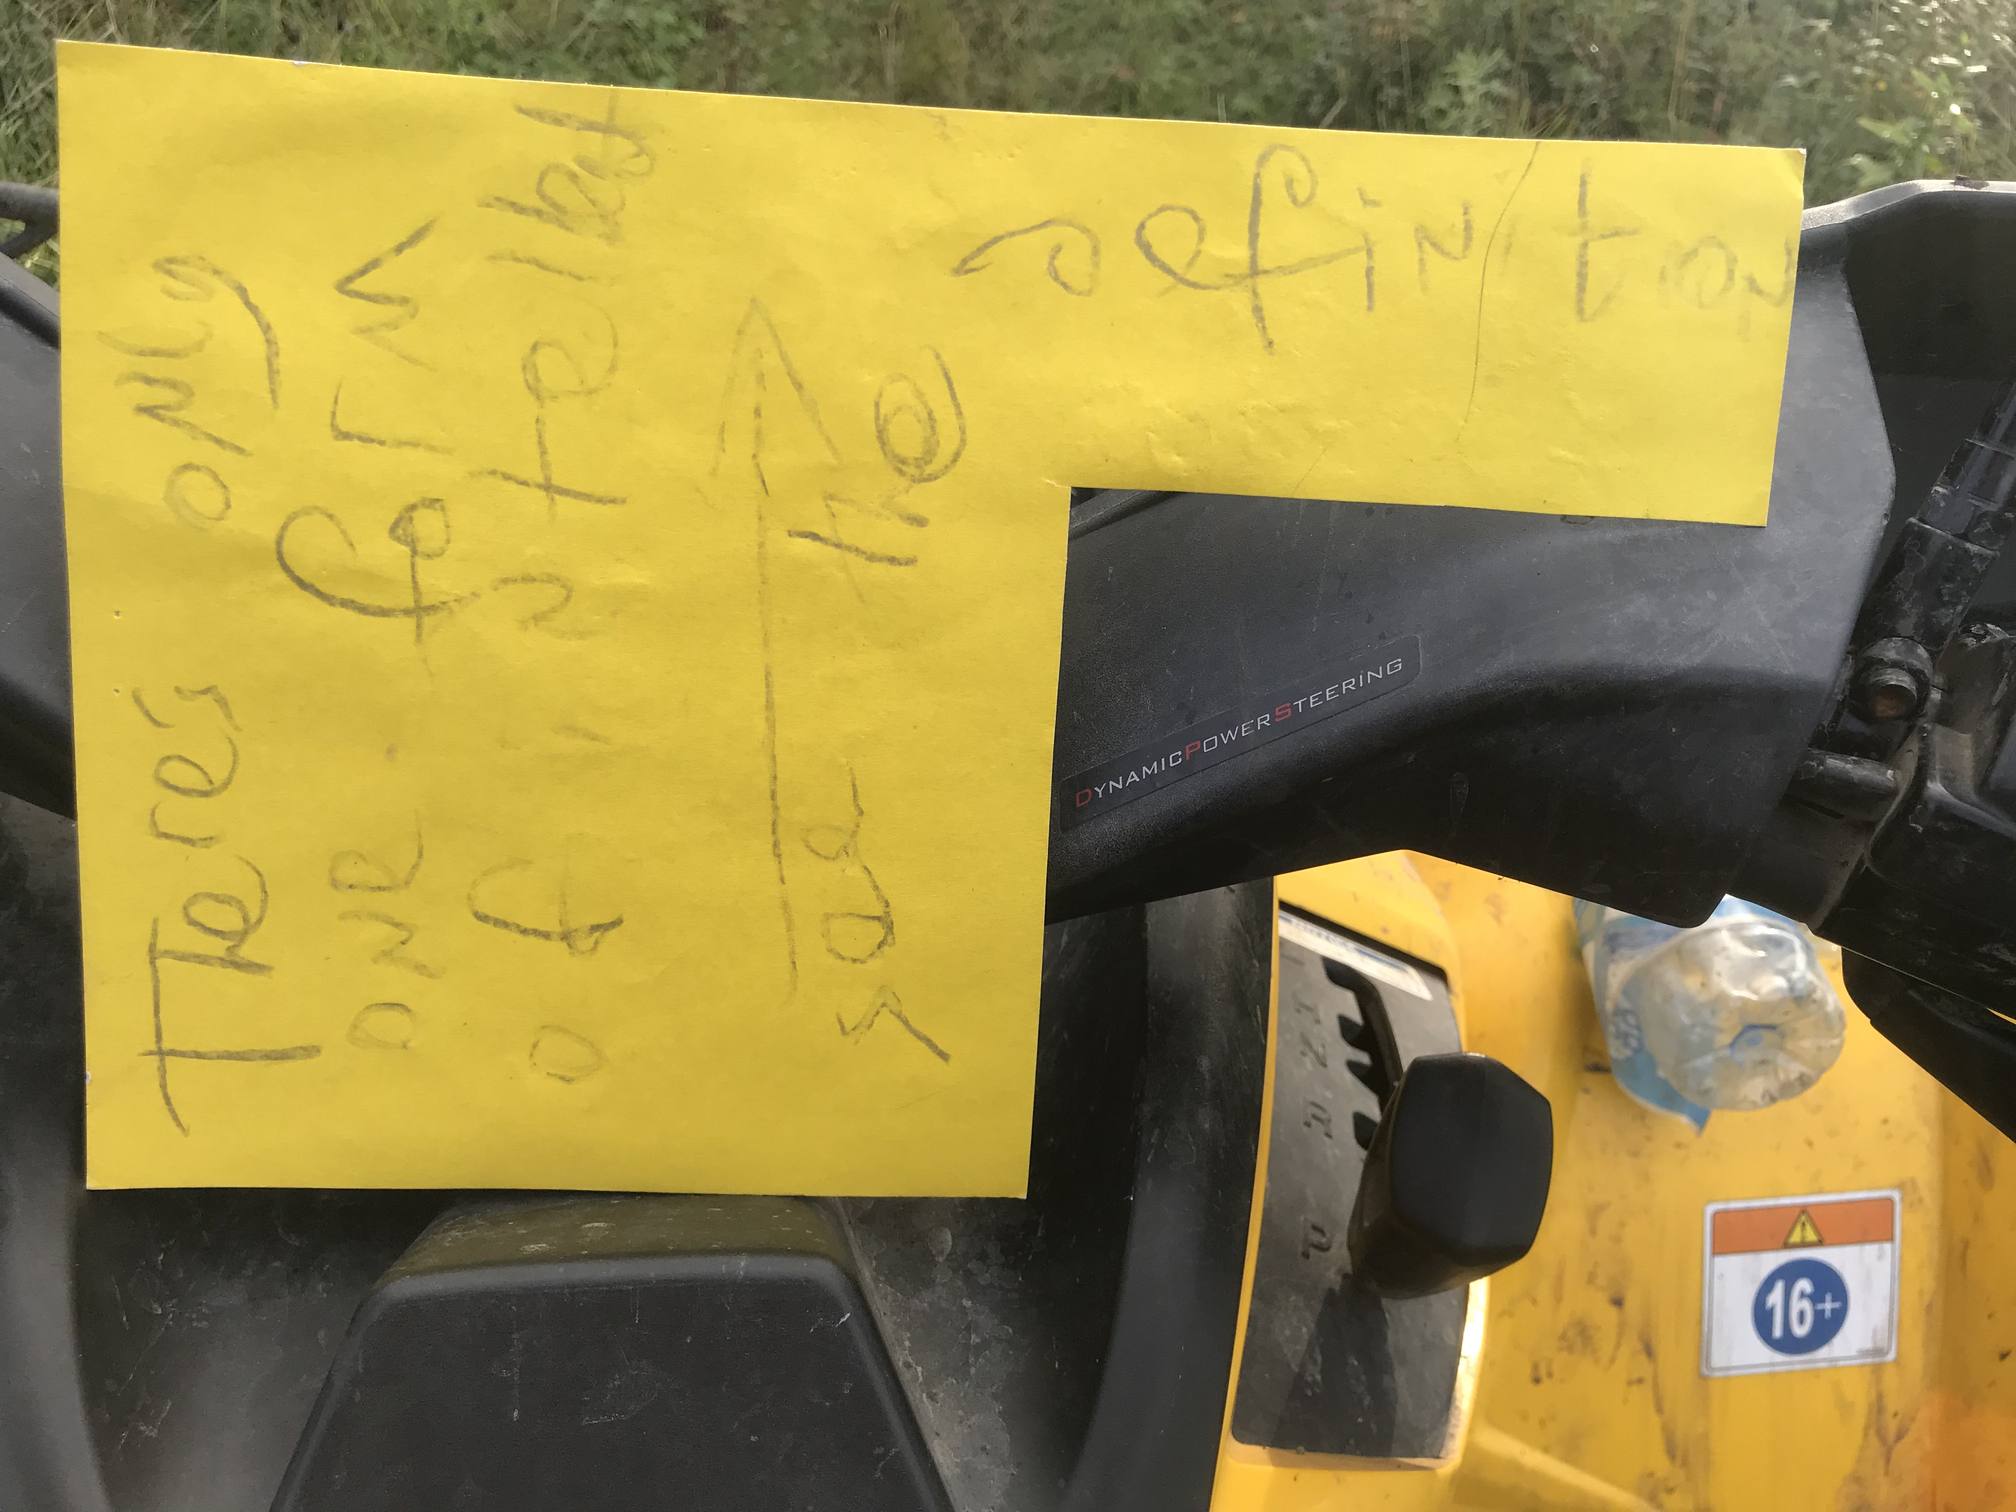 There's only
one form
of intellect
see the
definition
DYNAMICPOWERSTEERING
P
R
N
16+